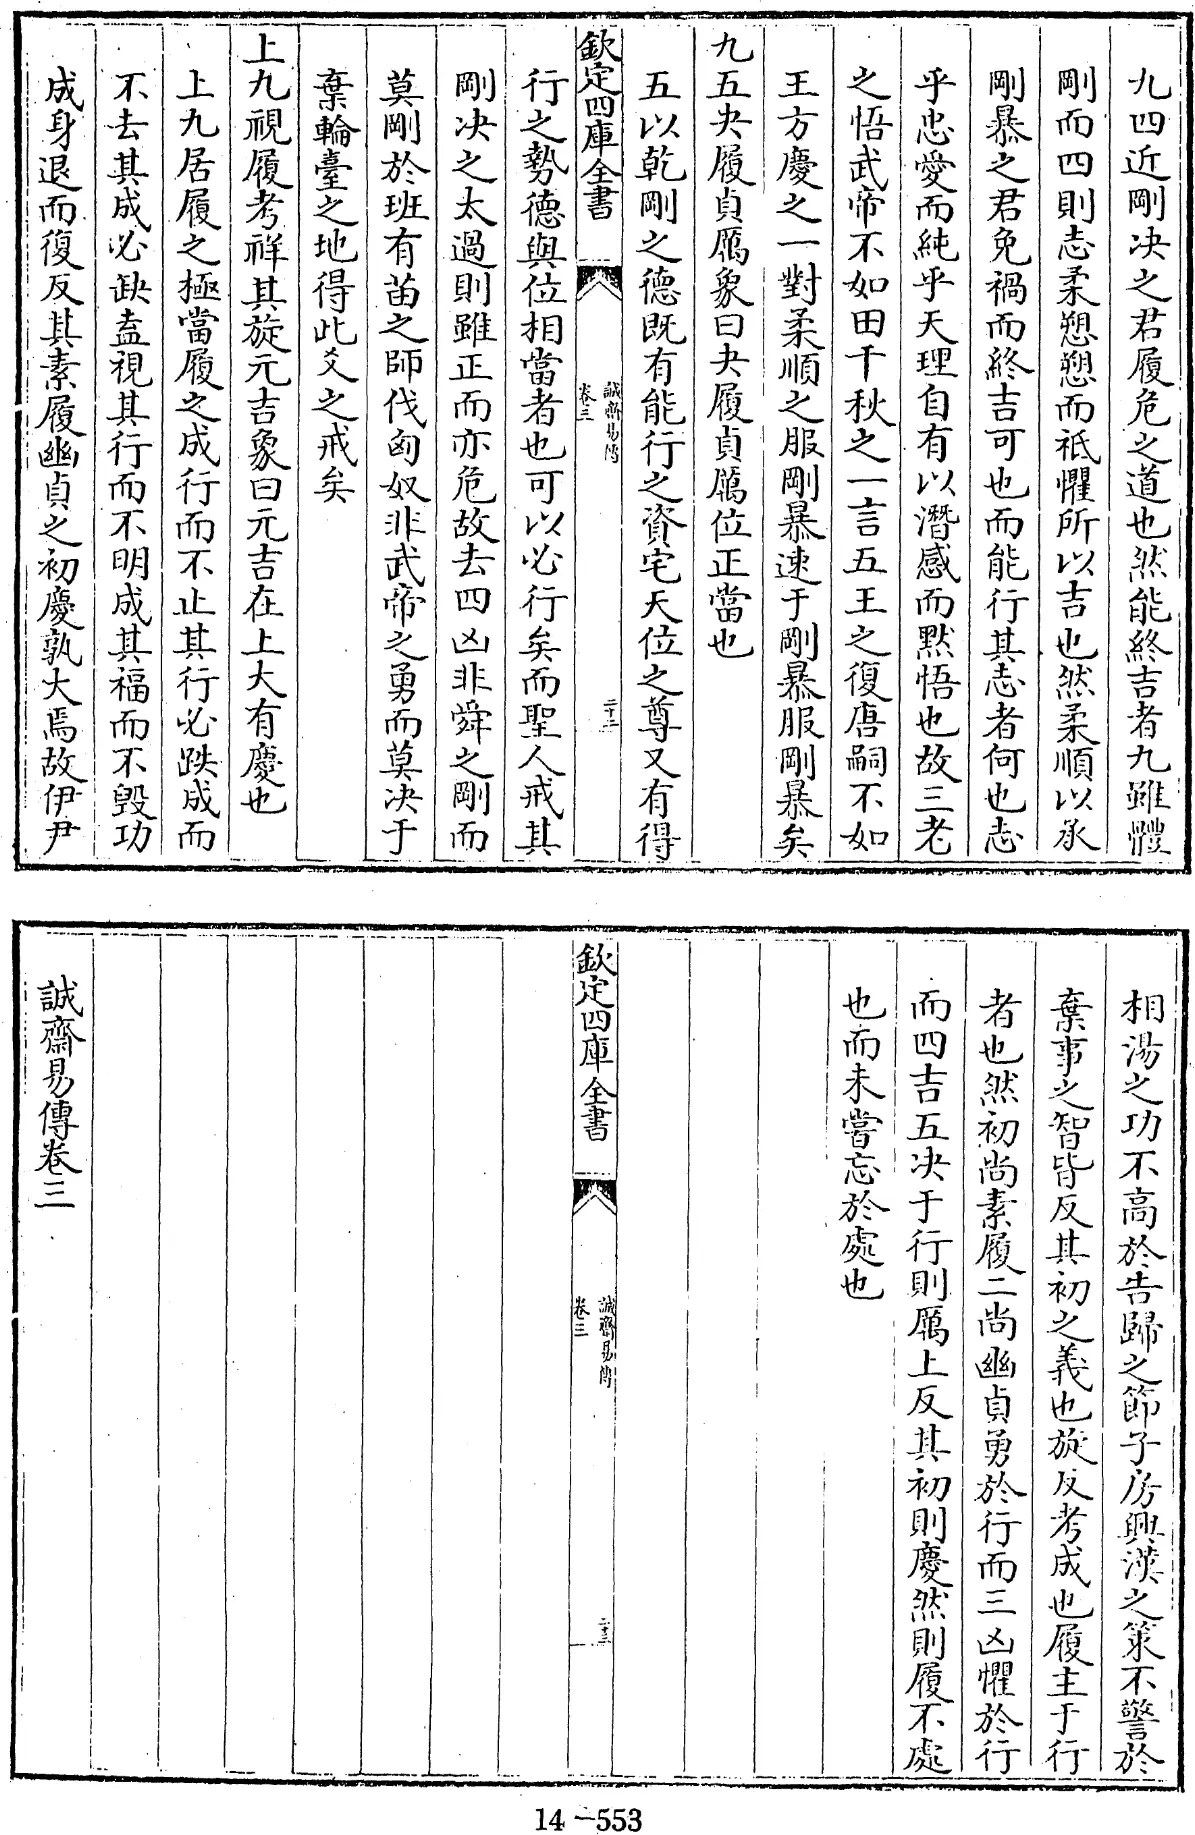 九四近剛决之君履危之道也然能終吉者九雖體
剛而四則志柔愬愬而祗懼所以吉也然柔順以承
剛暴之君免禍而終吉可也而能行其志者何也志
乎忠愛而純乎天理自有以潛感而黙悟也故三老
之悟武帝不如田千秋之一言五王之復唐嗣不如
王方慶之一對柔順之服剛暴速于剛暴服剛暴矣
九五夬履貞厲象曰夬履貞厲位正當也
五以乾剛之德既有能行之資宅天位之尊又有得
欽定四庫全書
誠齋易傳
卷三
二十二
行之勢德與位相當者也可以必行矣而聖人戒其
剛决之太過則雖正而亦危故去四凶非舜之剛而
莫剛於班有苗之師伐匈奴非武帝之勇而莫决于
棄輪臺之地得此爻之戒矣
上九視履考祥其旋元吉象曰元吉在上大有慶也
上九居履之極當履之成行而不止其行必跌成而
不去其成必缺盍視其行而不明成其福而不毁功
成身退而復反其素履幽貞之初慶孰大焉故伊尹
相湯之功不高於告歸之節子房興漢之策不警於
棄事之智皆反其初之義也旋反考成也履主于行
者也然初尚素履二尚幽貞勇於行而三凶懼於行
而四吉五决于行則厲上反其初則慶然則履不處
也而未嘗忘於處也
欽定四庫全書
誠齋易傳
卷三
二十三
誠齋易傳卷三
14-553